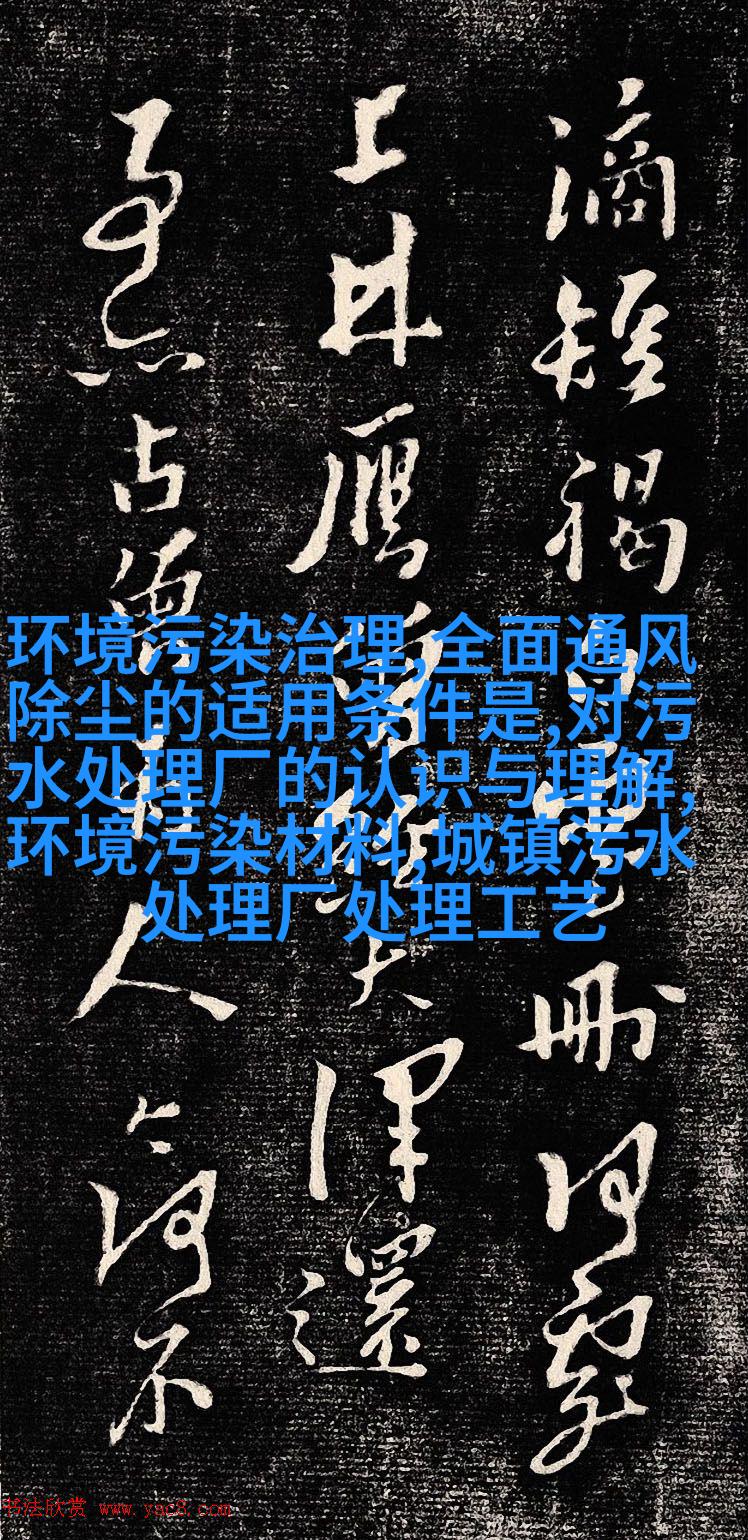 环境污染治理,全面通风
除尘的适用条件是,对污
水处理厂的认识与理解,
环境污染材料,城镇污水
处理厂处理工艺
滴短褐 删何
上林雁 大澤還
占 人 不
书法欣赏 www.yac8.com